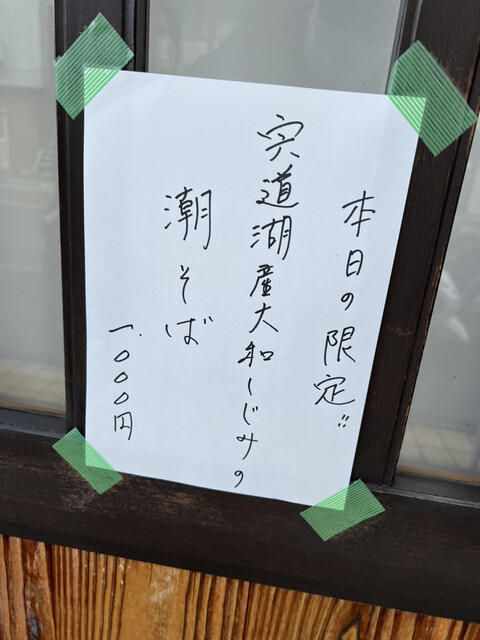 本日の限定!!
宍道湖産大和しじみの
潮そば
一.〇〇〇円